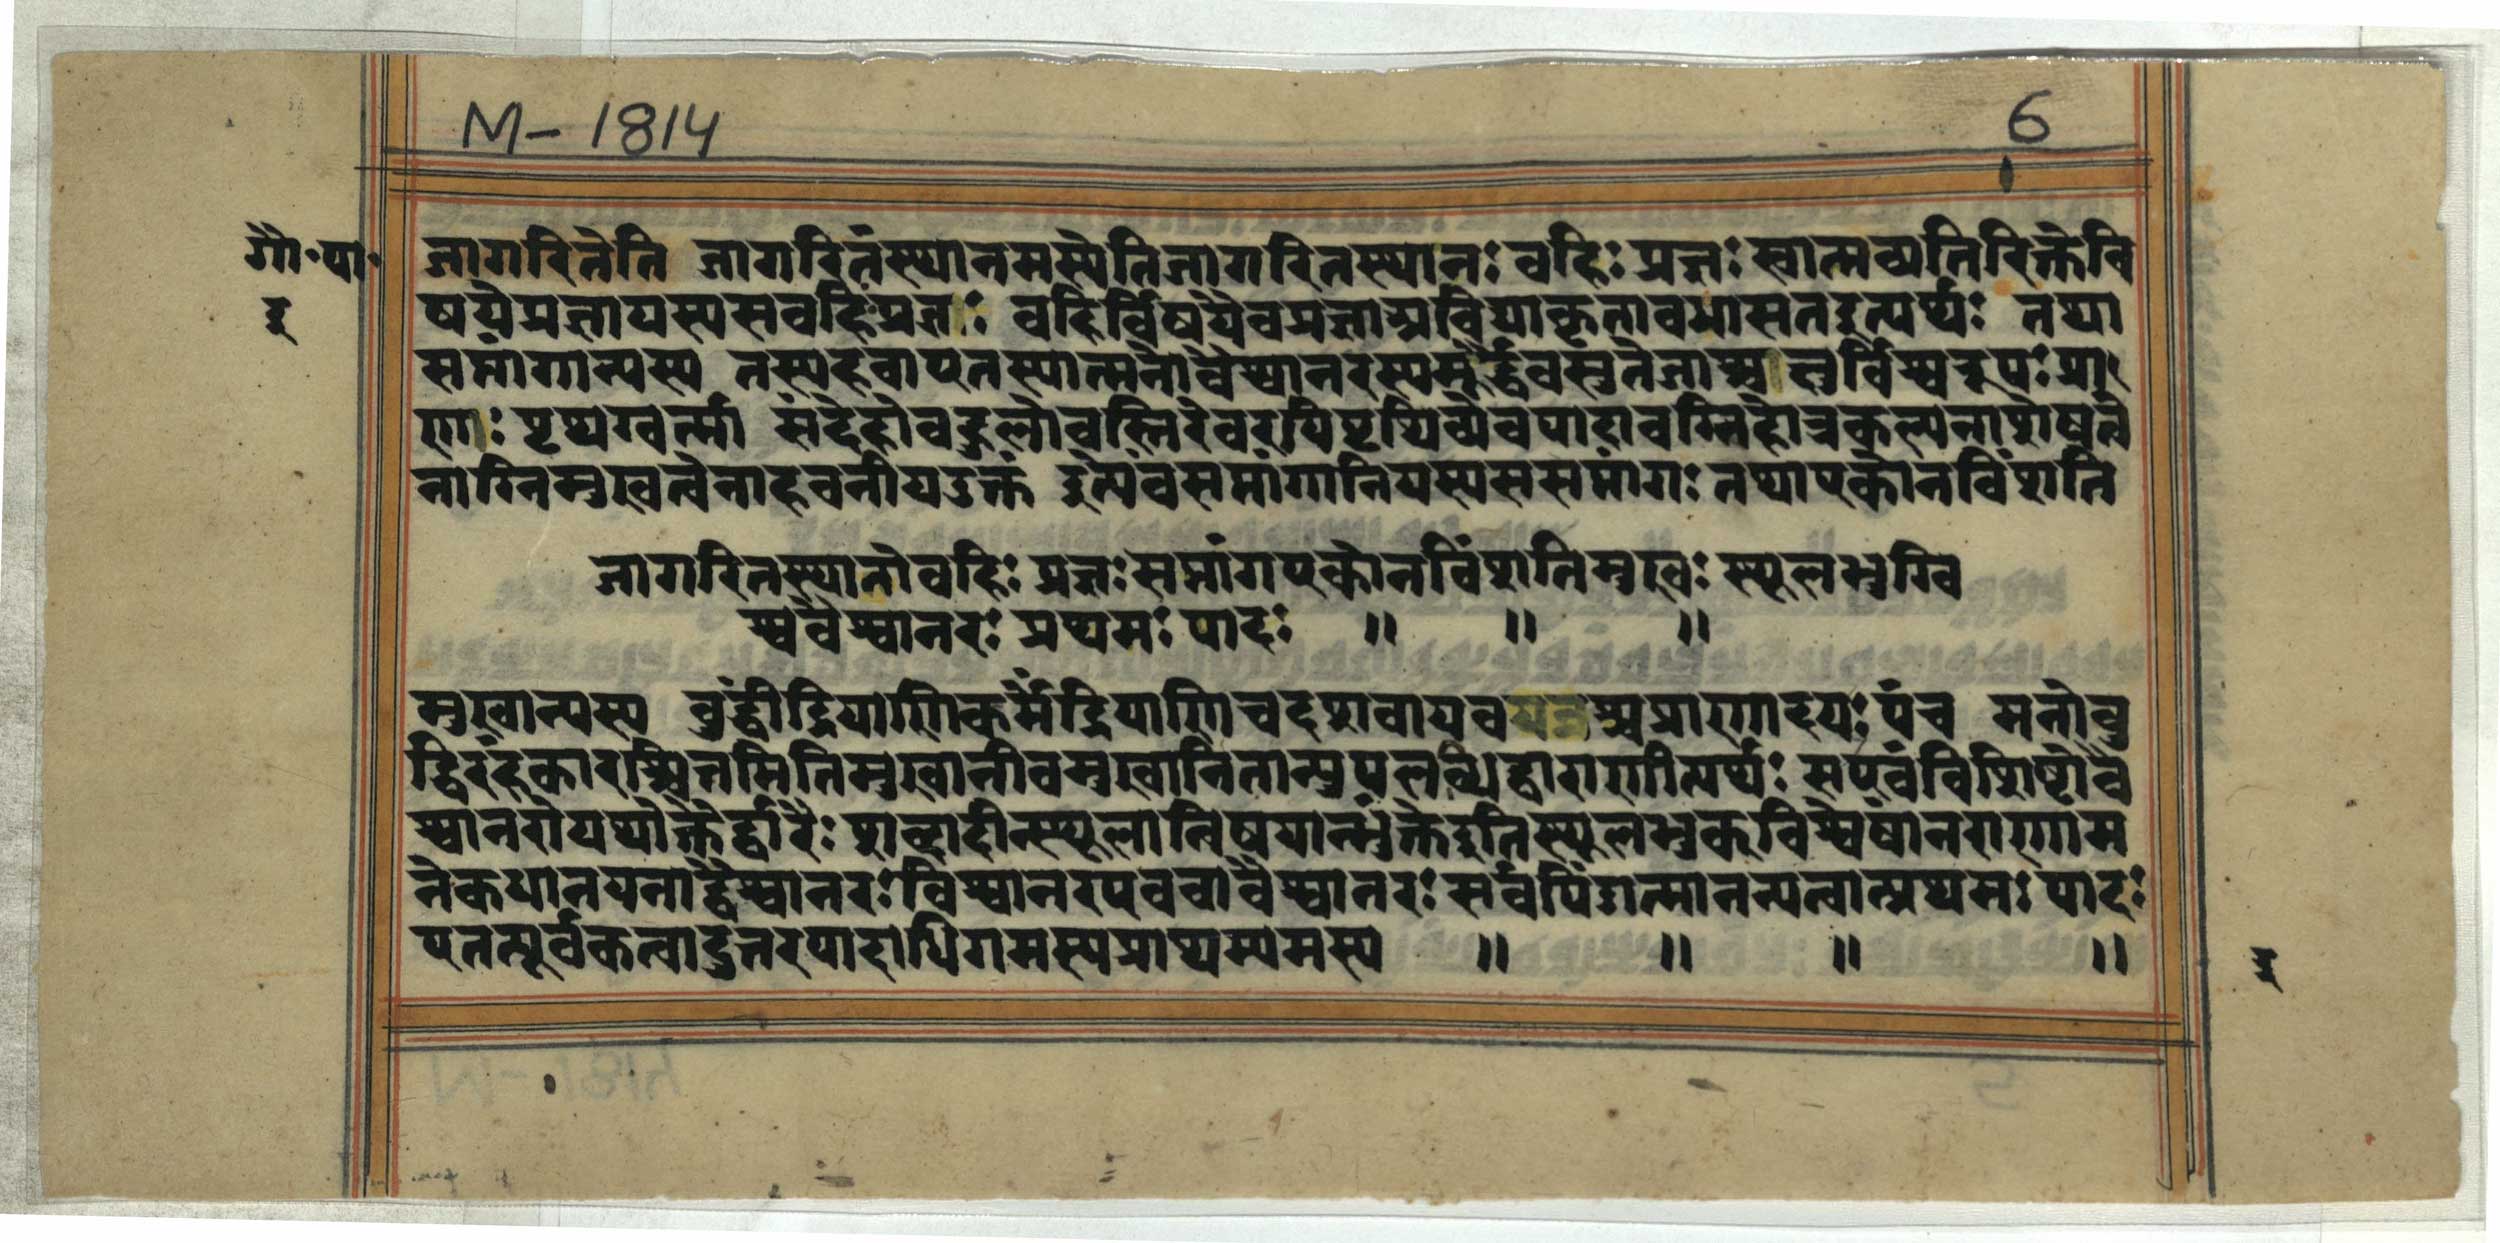 M-1814
6
गौ॰पा॰
इ
जागरितेति जागरितंस्थानमस्येतिजागरितस्थानः वहिः प्रज्ञः स्वात्मव्यतिरिक्तेवि
षयेप्रज्ञायस्यसवहिःप्रज्ञः वहिर्विषयेवप्रज्ञाअविद्याकृतावभासतइत्यर्थः तथा
सप्तांगान्यस्य तस्यहवाएतस्यात्मनोवैश्वानरस्यमूर्द्धैवसुतेजाश्चक्षुर्विश्वरूपः प्रा
णः पृथग्वर्त्मा संदेहोवहुलोवस्तिरेवरयिपृथिव्येवपादावग्निहोत्रकल्पनाशेषत्वे
नाग्निमुखत्वेनाहवनीयउक्त इत्येवंसप्तांगानियस्यससप्तांगः तथाएकोनविंशति
जागरितस्थानोवहिः प्रज्ञःसप्तांगएकोनविंशतिमुखः स्थूलभुग्वि
श्ववैश्वानरः प्रथमः पादः ॥ ॥ ॥
मुखान्यस्य वुद्धींद्रियाणिकर्मेंद्रियाणिचदशवायवश्चप्राणादयः पंच मनोवु
द्धिरहंकारश्चित्तमितिमुखानीवमुखानितान्युपलव्धिद्वाराणीत्यर्थः सएवंविशिष्टोवै
श्वानरोयथोक्तैर्द्वारैः शव्दादीन्स्थूलान्विषयान्भुंक्तेइतिस्थूलभुक् विश्वेषांनराणाम
नेकधानयनाद्वैश्वानरः विश्वानरएववावैश्वानरः सर्वपिंडात्मानन्यत्वात्प्रथमः पादः
एतत्पूर्वकत्वादुत्तरपादाधिगमस्यप्राथम्यमस्य ॥ ॥ ॥ ॥
इ